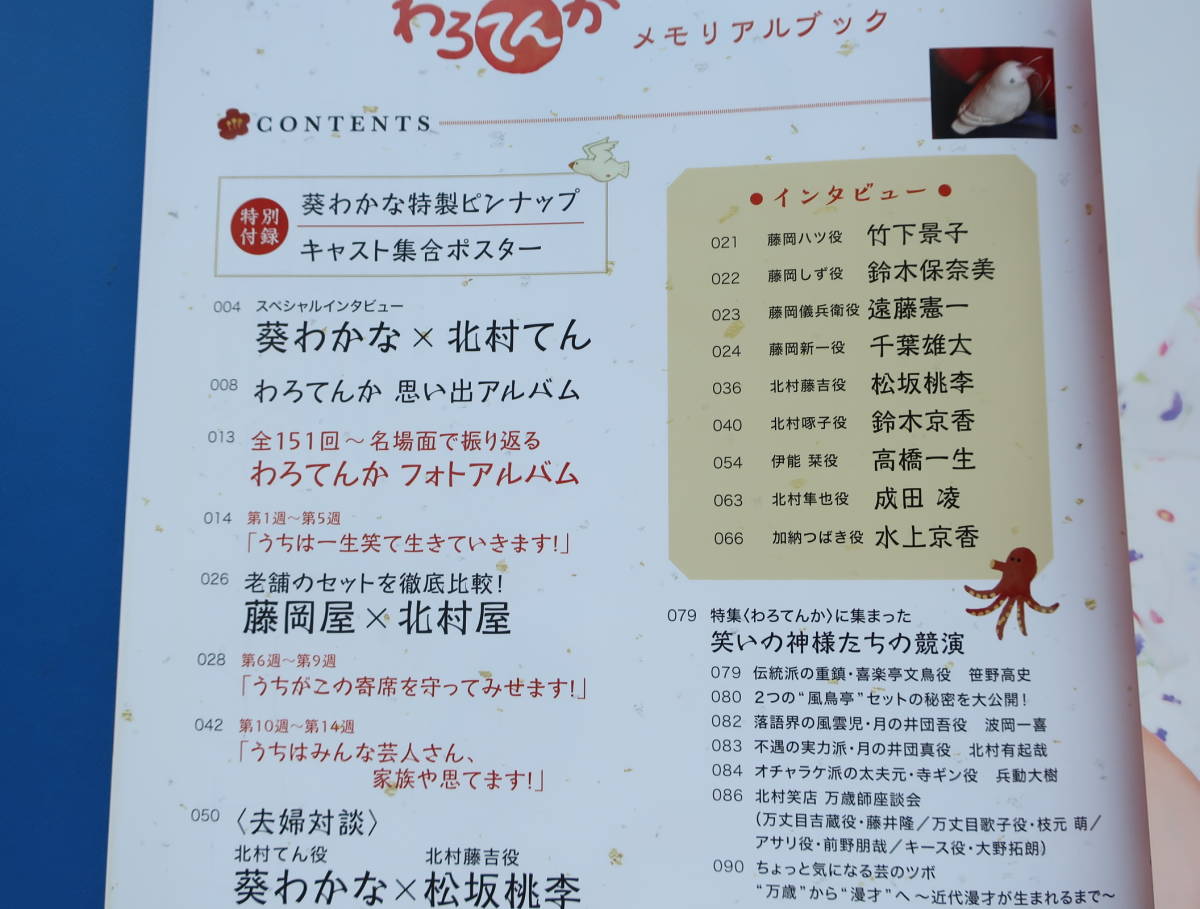 わろてんか メモリアルブック
CONTENTS
特別付録
葵わかな特製ピンナップ
キャスト集合ポスター
004 スペシャルインタビュー
葵わかな×北村てん
008 わろてんか 思い出アルバム
013 全151回～名場面で振り返る
わろてんか フォトアルバム
014 第1週～第5週
「うちは一生笑て生きていきます!」
026 老舗のセットを徹底比較!
藤岡屋×北村屋
028 第6週～第9週
「うちがこの寄席を守ってみせます!」
042 第10週～第14週
「うちはみんな芸人さん、
家族や思てます!」
050 〈夫婦対談〉
北村てん役 北村藤吉役
葵わかな×松坂桃李
●インタビュー●
021 藤岡ハツ役 竹下景子
022 藤岡しず役 鈴木保奈美
023 藤岡儀兵衛役 遠藤憲一
024 藤岡新一役 千葉雄大
036 北村藤吉役 松坂桃李
040 北村啄子役 鈴木京香
054 伊能 栞役 高橋一生
063 北村隼也役 成田 凌
066 加納つばき役 水上京香
079 特集〈わろてんか〉に集まった
笑いの神様たちの競演
079 伝統派の重鎮・喜楽亭文鳥役 笹野高史
080 2つの“風鳥亭”セットの秘密を大公開!
082 落語界の風雲児・月の井団吾役 波岡一喜
083 不遇の実力派・月の井団真役 北村有起哉
084 オチャラケ派の太夫元・寺ギン役 兵動大樹
086 北村笑店 万歳師座談会
(万丈目吉蔵役・藤井隆／万丈目歌子役・枝元 萌／
アサリ役・前野朋哉／キース役・大野拓朗)
090 ちょっと気になる芸のツボ
“万歳”から“漫才”へ ～近代漫才が生まれるまで～